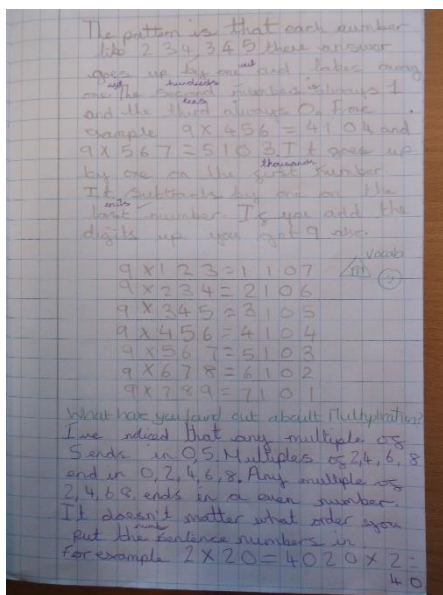 The pattern is that each number
like 234, 345 there answer
goes up by one and takes away
one. The second number is always 1
hundreds
and the third always 0. For
tens
example 9 x 456 = 4104 and
9 x 567 = 5103. It goes up
thousands
by one on the first number
It subtracts by one on the
units
last number. If you add the
digits up you get 9 also.
vocab
9 x 123 = 1107
9 x 234 = 2106
9 x 345 = 3105
9 x 456 = 4104
9 x 567 = 5103
9 x 678 = 6102
9 x 789 = 7101
What have you found out about Multiplication?
I've noticed that any multiple of
5 ends in 0,5. Multiples of 2,4,6,8
end in 0,2,4,6,8. Any multiple of
2,4,6,8. ends in a even number.
It doesn't matter what order you
number
put the sentence numbers in
for example 2 x 20 = 40 20 x 2 =
40